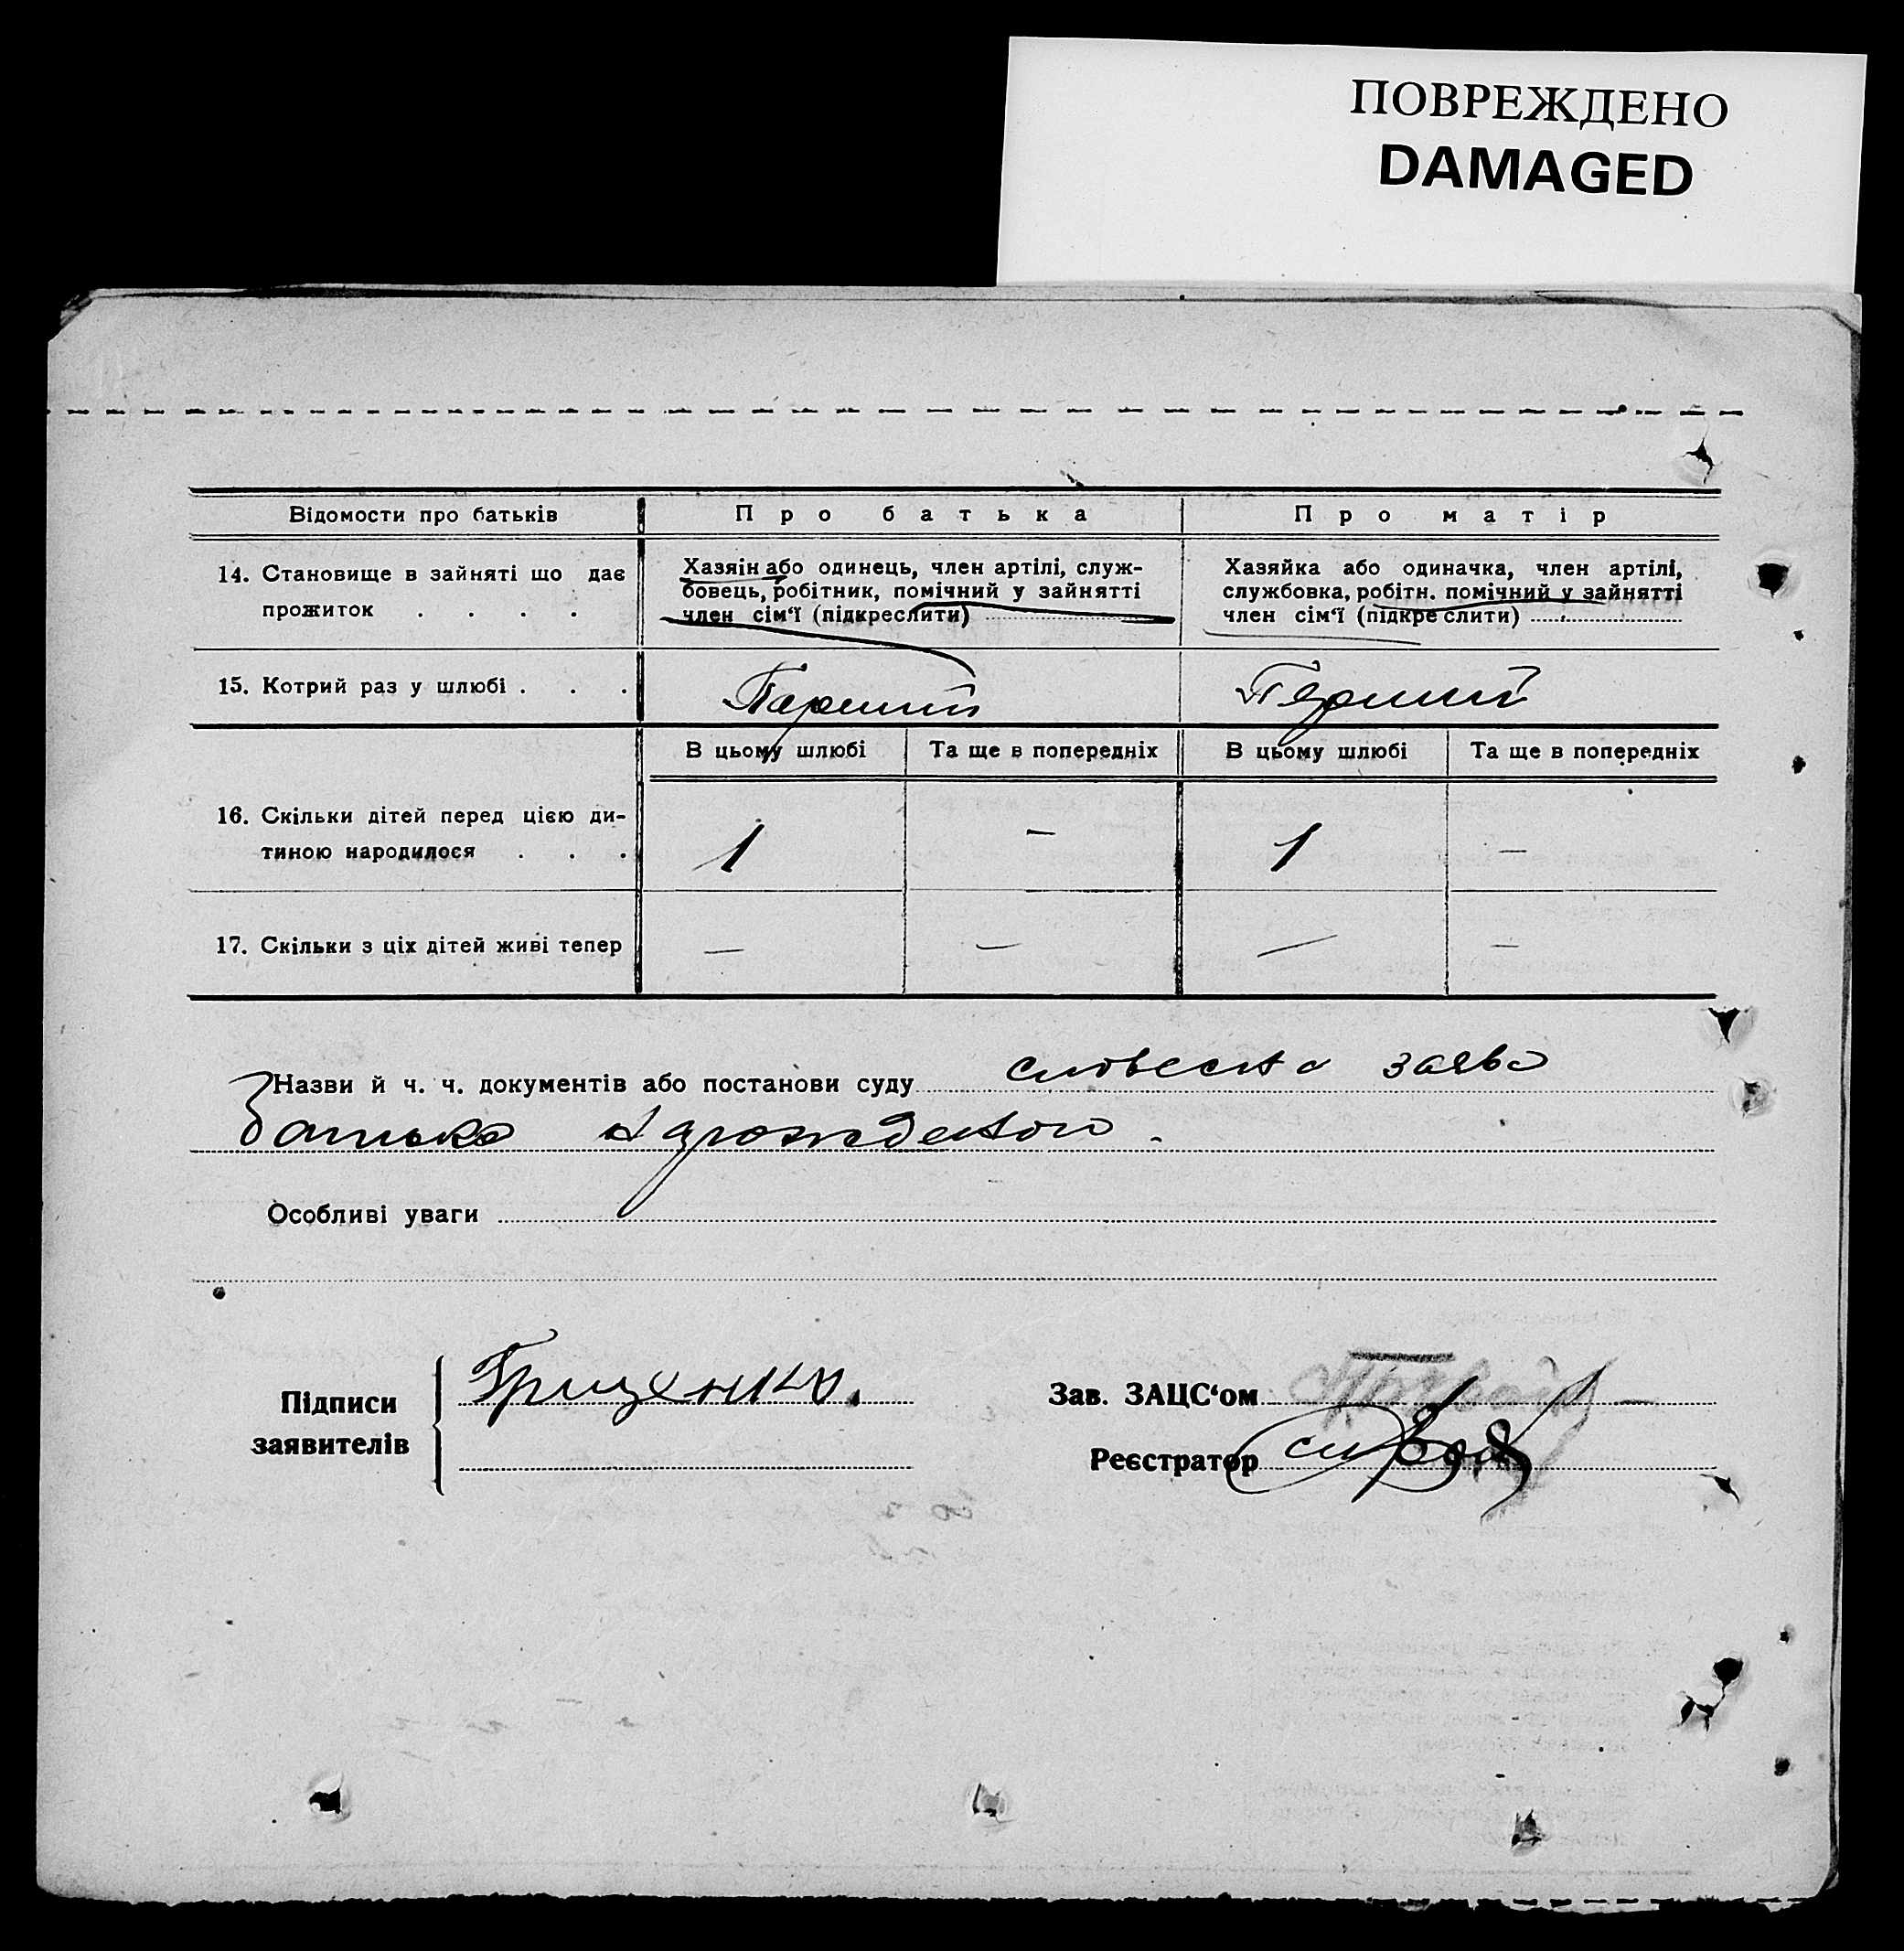 ПОВРЕЖДЕНО
DAMAGED
Відомости про батьків
Про батька
Про матір
14. Становище в зайняті що дає
прожиток . . . .
Хазяін або одинець, член артілі, служ-
бовець, робітник, помічний у зайнятті
член сім'ї (підкреслити)
Хазяйка або одиначка, член артілі,
службовка, робітн. помічний у зайнятті
член сім'ї (підкреслити)
15. Котрий раз у шлюбі . . .
Перший
Перший
В цьому шлюбі
Та ще в попередніх
В цьому шлюбі
Та ще в попередніх
16. Скільки дітей перед цією ди-
тиною народилося . . .
1
—
1
—
17. Скільки з ціх дітей живі тепер
—
—
—
—
Назви й ч. ч. документів або постанови суду словесна заява
батька
Особливі уваги
Підписи
заявителів
Грищенко.
Зав. ЗАЦС'ом
Реєстратор